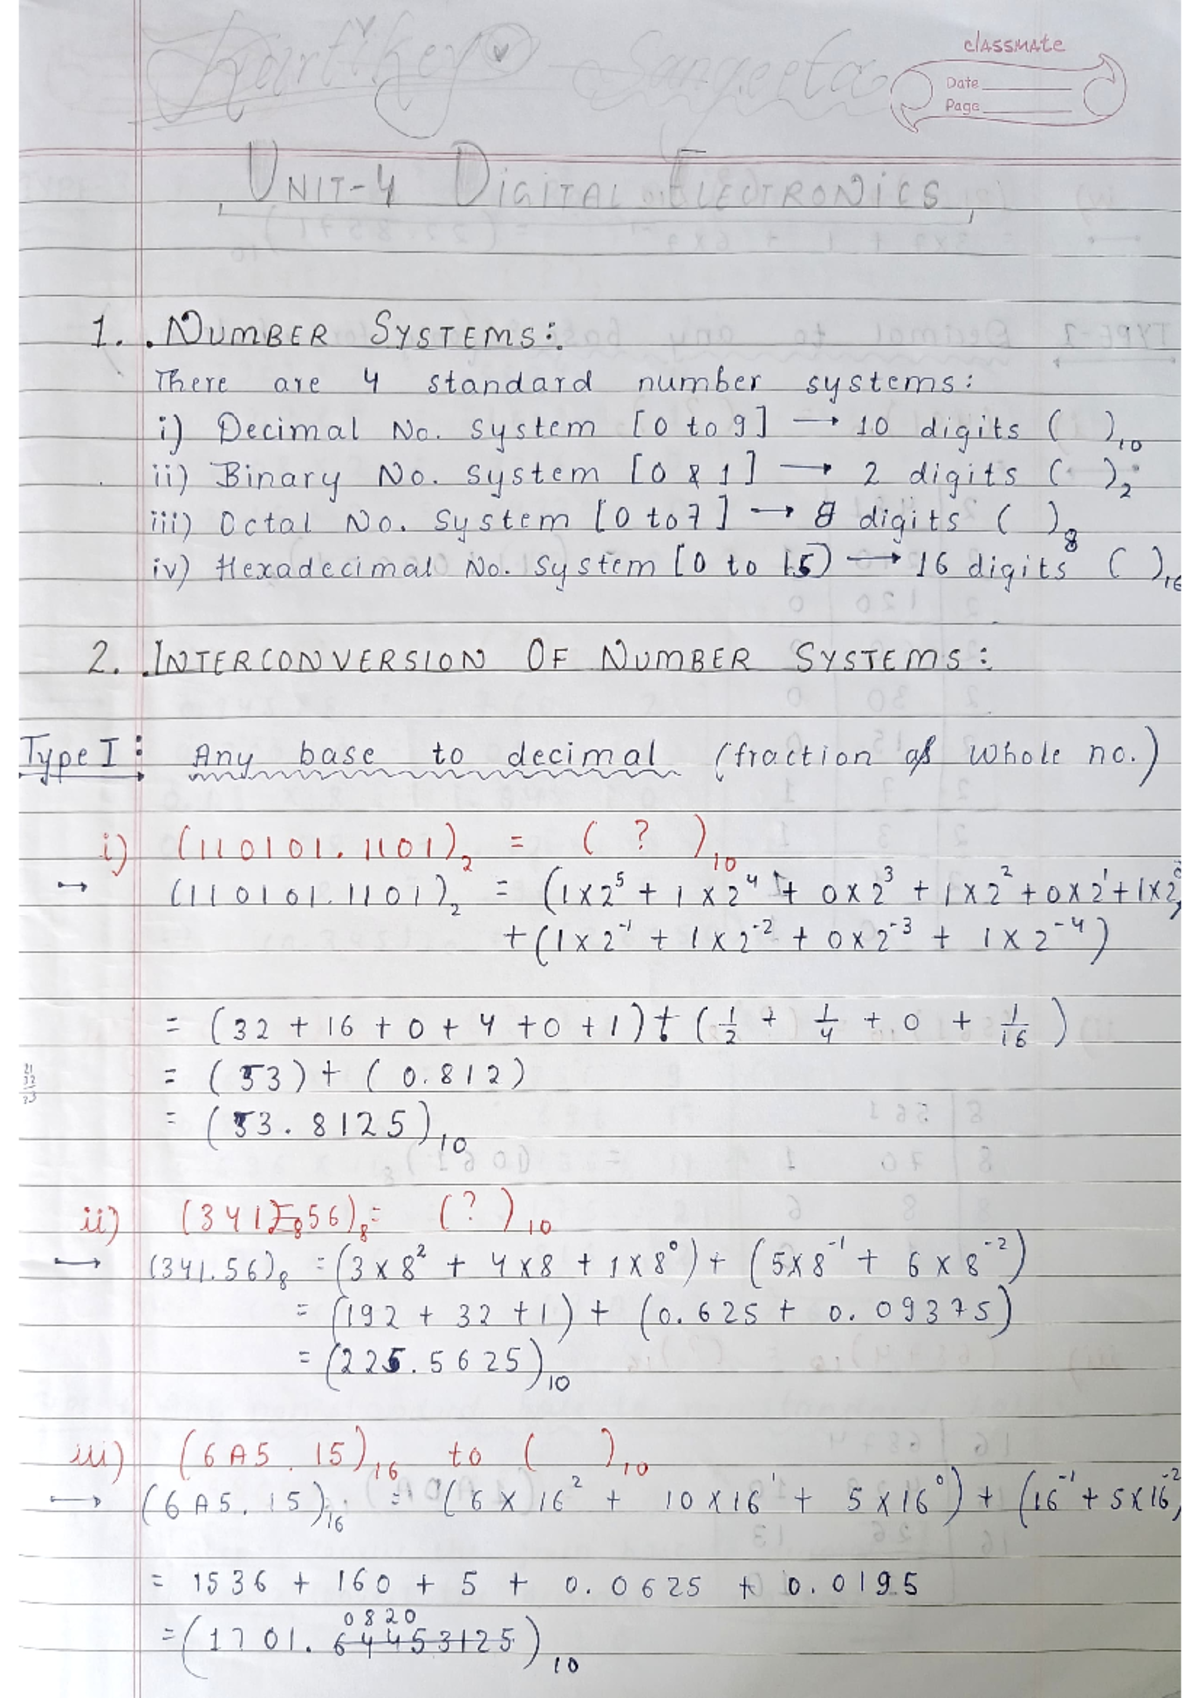 Kartikey Sangeeta
classmate
Date
Page
UNIT-4 DIGITAL ELECTRONICS
1. NUMBER SYSTEMS:
There are 4 standard number systems:
i) Decimal No. System [0 to 9] → 10 digits ( )₁₀
ii) Binary No. System [0 & 1] → 2 digits ( )₂
iii) Octal No. System [0 to 7] → 8 digits ( )₈
iv) Hexadecimal No. System [0 to 15) → 16 digits ( )₁₆
2. INTERCONVERSION OF NUMBER SYSTEMS:
Type I: Any base to decimal (fraction of whole no.)
i) (110101.1101)₂ = ( ? )₁₀
→ (110101.1101)₂ = (1×2⁵ + 1×2⁴ + 0×2³ + 1×2² + 0×2¹ + 1×2⁰)
+ (1×2⁻¹ + 1×2⁻² + 0×2⁻³ + 1×2⁻⁴)
= (32 + 16 + 0 + 4 + 0 + 1) + (1/2 + 1/4 + 0 + 1/16)
= (53) + (0.812)
= (53.8125)₁₀
ii) (341.56)₈ = (?)₁₀
→ (341.56)₈ = (3×8² + 4×8 + 1×8⁰) + (5×8⁻¹ + 6×8⁻²)
= (192 + 32 + 1) + (0.625 + 0.09375)
= (225.5625)₁₀
iii) (6A5.15)₁₆ to ( )₁₀
→ (6A5.15)₁₆ = (6×16² + 10×16¹ + 5×16⁰) + (16⁻¹ + 5×16⁻²)
= 1536 + 160 + 5 + 0.0625 + 0.0195
0820
= (1701.64453125)₁₀